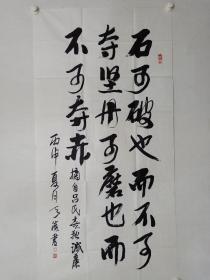 石可破也而不可
夺坚丹可磨也而
不可夺赤
摘自吕氏春秋诚廉
丙申夏月书